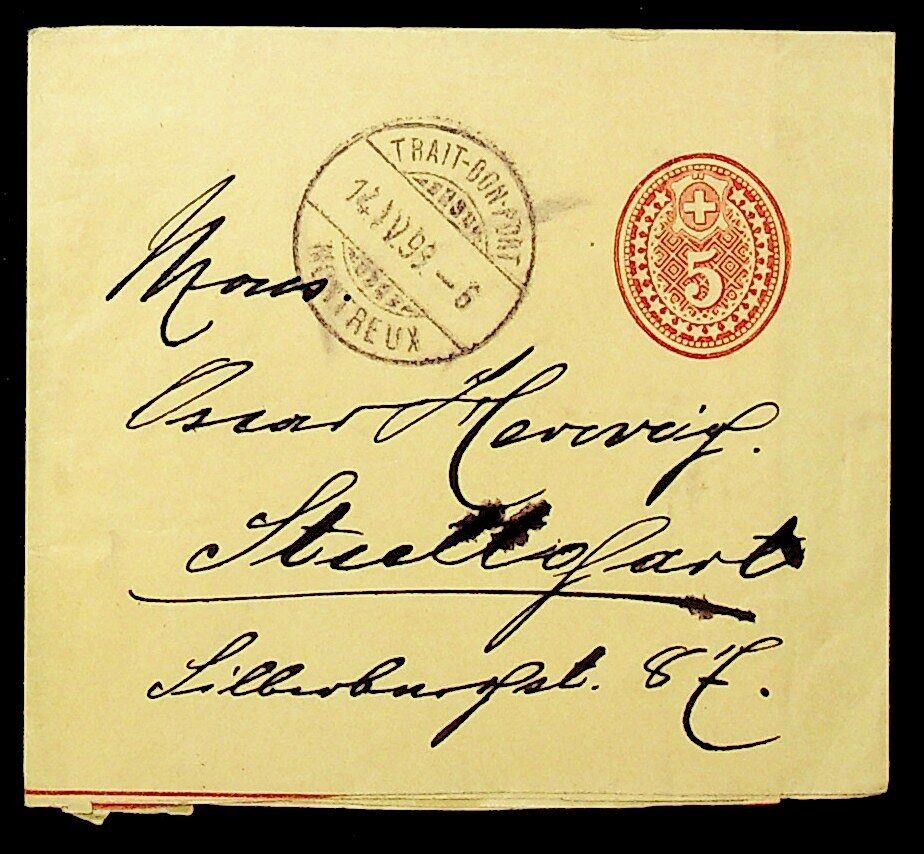 TRAIT-BON-PORT
14.IV.99.–6
MONTREUX
5
Mons.
Oscar Herwig.
Stuttgart
Silberburgst.